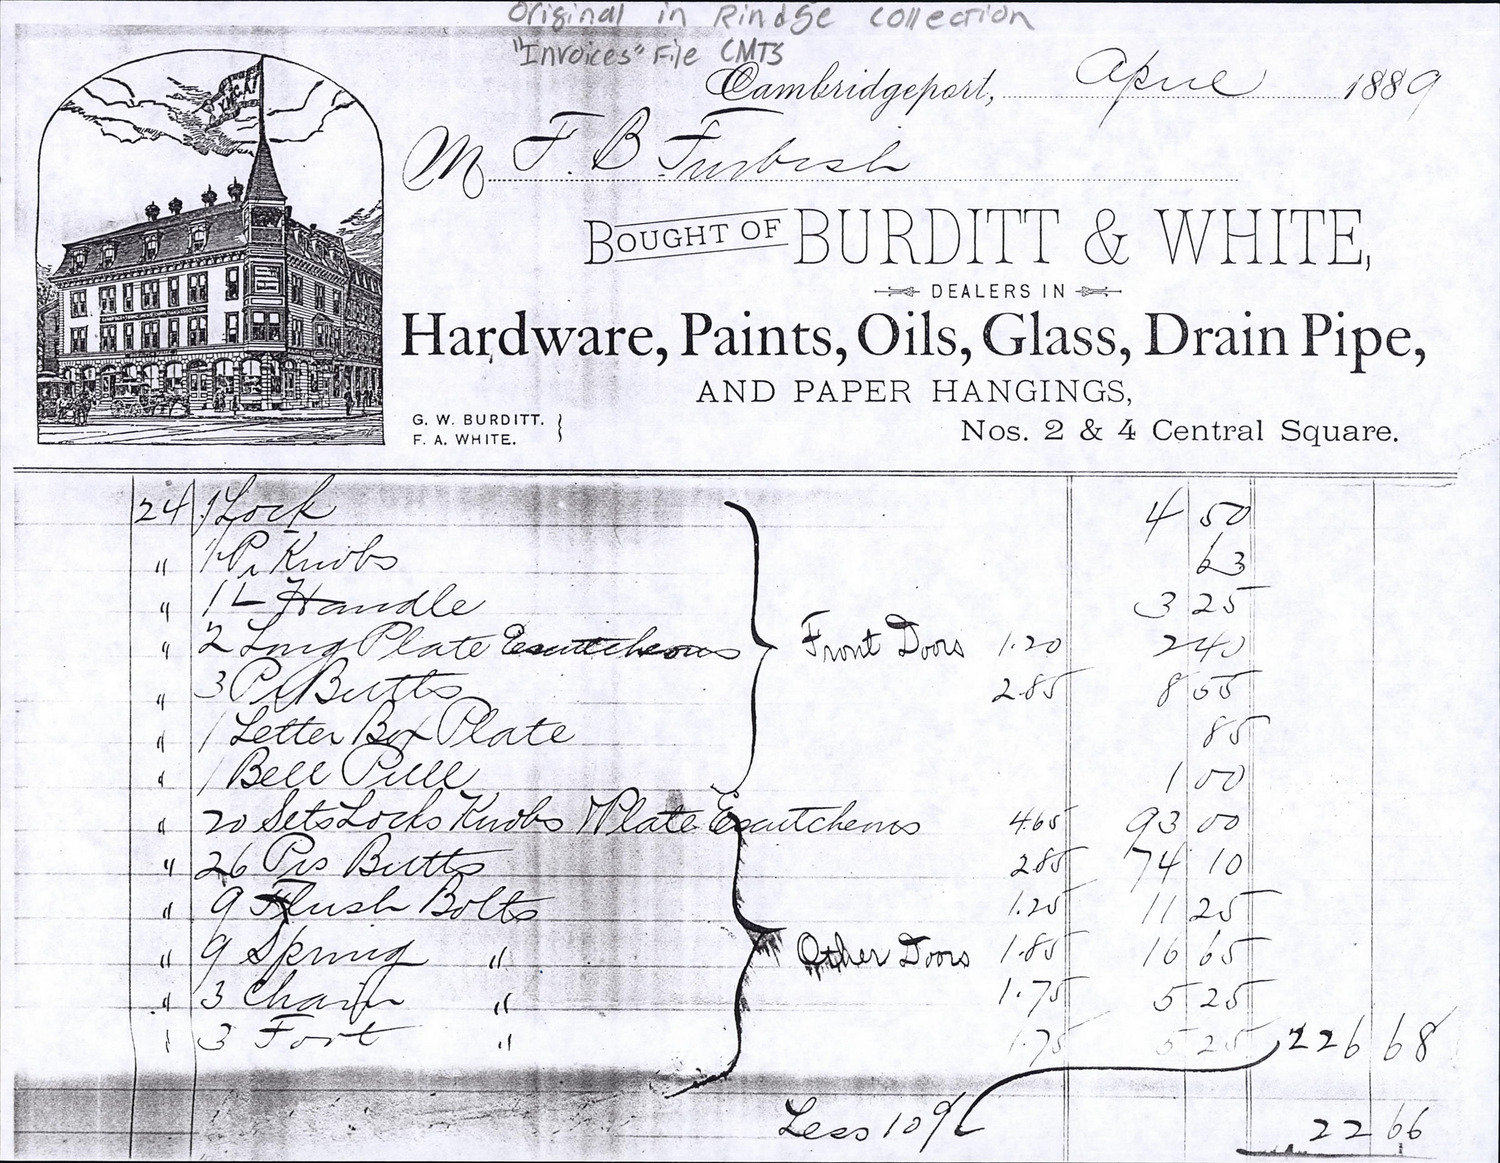 Original in Rindge Collection
"Invoices" File CMTS
Cambridgeport, April 1889
Y.M.C.A.
M F. B Furbish
BOUGHT OF BURDITT & WHITE,
DEALERS IN
Hardware, Paints, Oils, Glass, Drain Pipe,
AND PAPER HANGINGS,
G. W. BURDITT.
F. A. WHITE.
Nos. 2 & 4 Central Square.
24 1 Lock 4 50
" 1 Pr Knobs 63
" 1 L Handle 3 25
" 2 Long Plate Escutcheons Front Doors 1.20 2 40
" 3 Pr Butts 2.85 8 55
" 1 Letter Box Plate 85
" 1 Bell Pull 1 00
" 20 Sets Locks Knobs Plate Escutcheons 4.65 93 00
" 26 Prs Butts 2.85 74 10
" 9 Flush Bolts 1.25 11 25
" 9 Spring " Other Doors 1.85 16 65
" 3 Chain " 1.75 5 25
" 3 Foot " 1.75 5 25 226 68
Less 10% 22 66